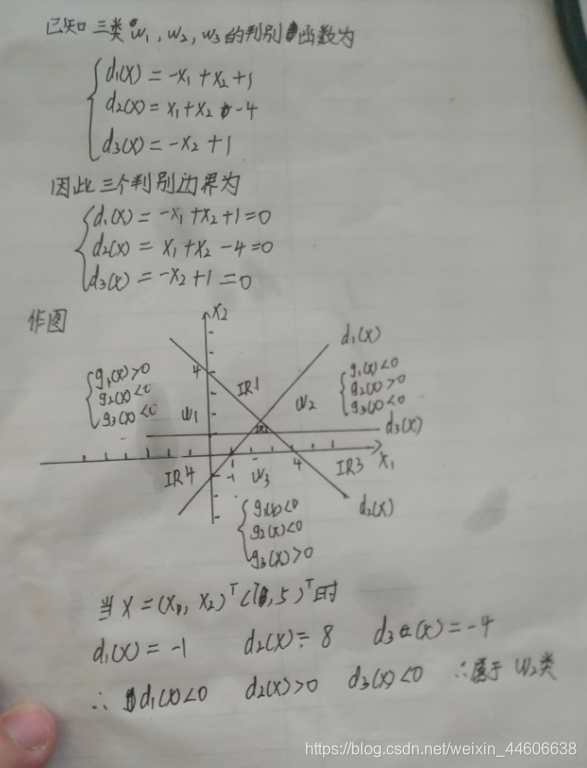 已知三类 w₁, w₂, w₃的判别函数为
d₁(x) = -x₁ + x₂ + 1
d₂(x) = x₁ + x₂ - 4
d₃(x) = -x₂ + 1
因此三个判别边界为
d₁(x) = -x₁ + x₂ + 1 = 0
d₂(x) = x₁ + x₂ - 4 = 0
d₃(x) = -x₂ + 1 = 0
作图
x₂
d₁(x)
g₁(x)>0
g₂(x)<0
g₃(x)<0
4
IR1
w₁
w₂
g₁(x)<0
g₂(x)>0
g₃(x)<0
d₃(x)
x₁
IR4
-1
w₃
4
IR3
d₂(x)
g₁(x)<0
g₂(x)<0
g₃(x)>0
当 X = (x₁, x₂)ᵀ = (7, 5)ᵀ时
d₁(x) = -1 d₂(x) = 8 d₃(x) = -4
∴ d₁(x)<0 d₂(x)>0 d₃(x)<0 ∴属于 w₂类
https://blog.csdn.net/weixin_44606638